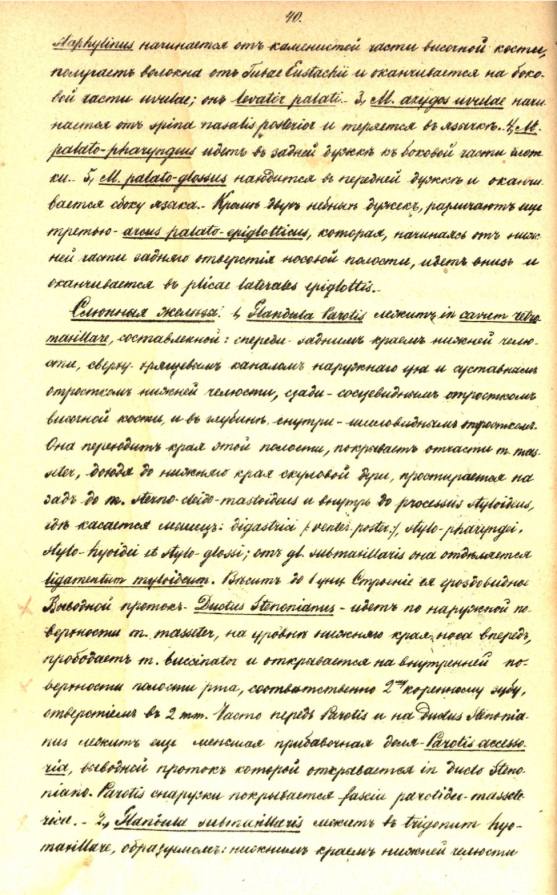 40.
Staphylinus начинается отъ каменистой части височной кости,
получаетъ волокна отъ Tubae Eustachii и оканчивается на боко-
вой части uvulae; онъ levator palati. 3, M. azygos uvulae начи-
нается отъ spina nasalis posterior и теряется въ язычкѣ. 4, M.
palato-pharyngeus идетъ въ задней дужкѣ къ боковой части глот-
ки. 5, M. palato-glossus находится въ передней дужкѣ и оканчи-
вается сбоку языка. Кромѣ двухъ небныхъ дужекъ, различаютъ еще
третью - arcus palato-epiglotticus, которая, начинаясь отъ ниж-
ней части задняго отверстія носовой полости, идетъ внизъ и
оканчивается въ plicae laterales epiglottis.
Слюнныя железы: 1, Glandula Parotis лежитъ in cavum retro-
maxillare, составленной: спереди - заднимъ краемъ нижней челю-
сти, сверху - хрящевымъ каналомъ наружнаго уха и суставнымъ
отросткомъ нижней челюсти, сзади - сосцевиднымъ отросткомъ
височной кости, и въ глубинѣ, снутри - шиловиднымъ отросткомъ.
Она переходитъ края этой полости, покрываетъ отчасти m. mas-
seter, доходя до нижняго края скуловой дуги, простирается на
задъ до m. sterno-cleido-mastoideus и внутрь до processus styloideus,
гдѣ касается мышцъ: digastrici /:venter poster:/, stylo-pharyngei,
stylo-hyoidei et stylo-glossi; отъ gl. submaxillaris она отдѣляется
ligamentum myloideum. Вѣситъ до 1 унц. Строеніе ея гроздовидное
Выводной протокъ - Ductus Stenonianus - идетъ по наружной по-
верхности m. masseter, на уровнѣ нижняго края носа впередъ,
прободаетъ m. buccinator и открывается на внутренней по-
верхности полости рта, соотвѣтственно 2му коренному зубу,
отверстіемъ въ 2 mm. Часто передъ Parotis и на Ductus Stenonia-
nus лежитъ еще меньшая прибавочная доля - Parotis accesso-
ria, выводной протокъ которой открывается in ducto Steno-
niano. Parotis снаружи покрывается fascia parotideo-massete-
rica. - 2, Glandula submaxillaris лежитъ въ trigonum hyo-
maxillare, образуемомъ: нижнимъ краемъ нижней челюсти